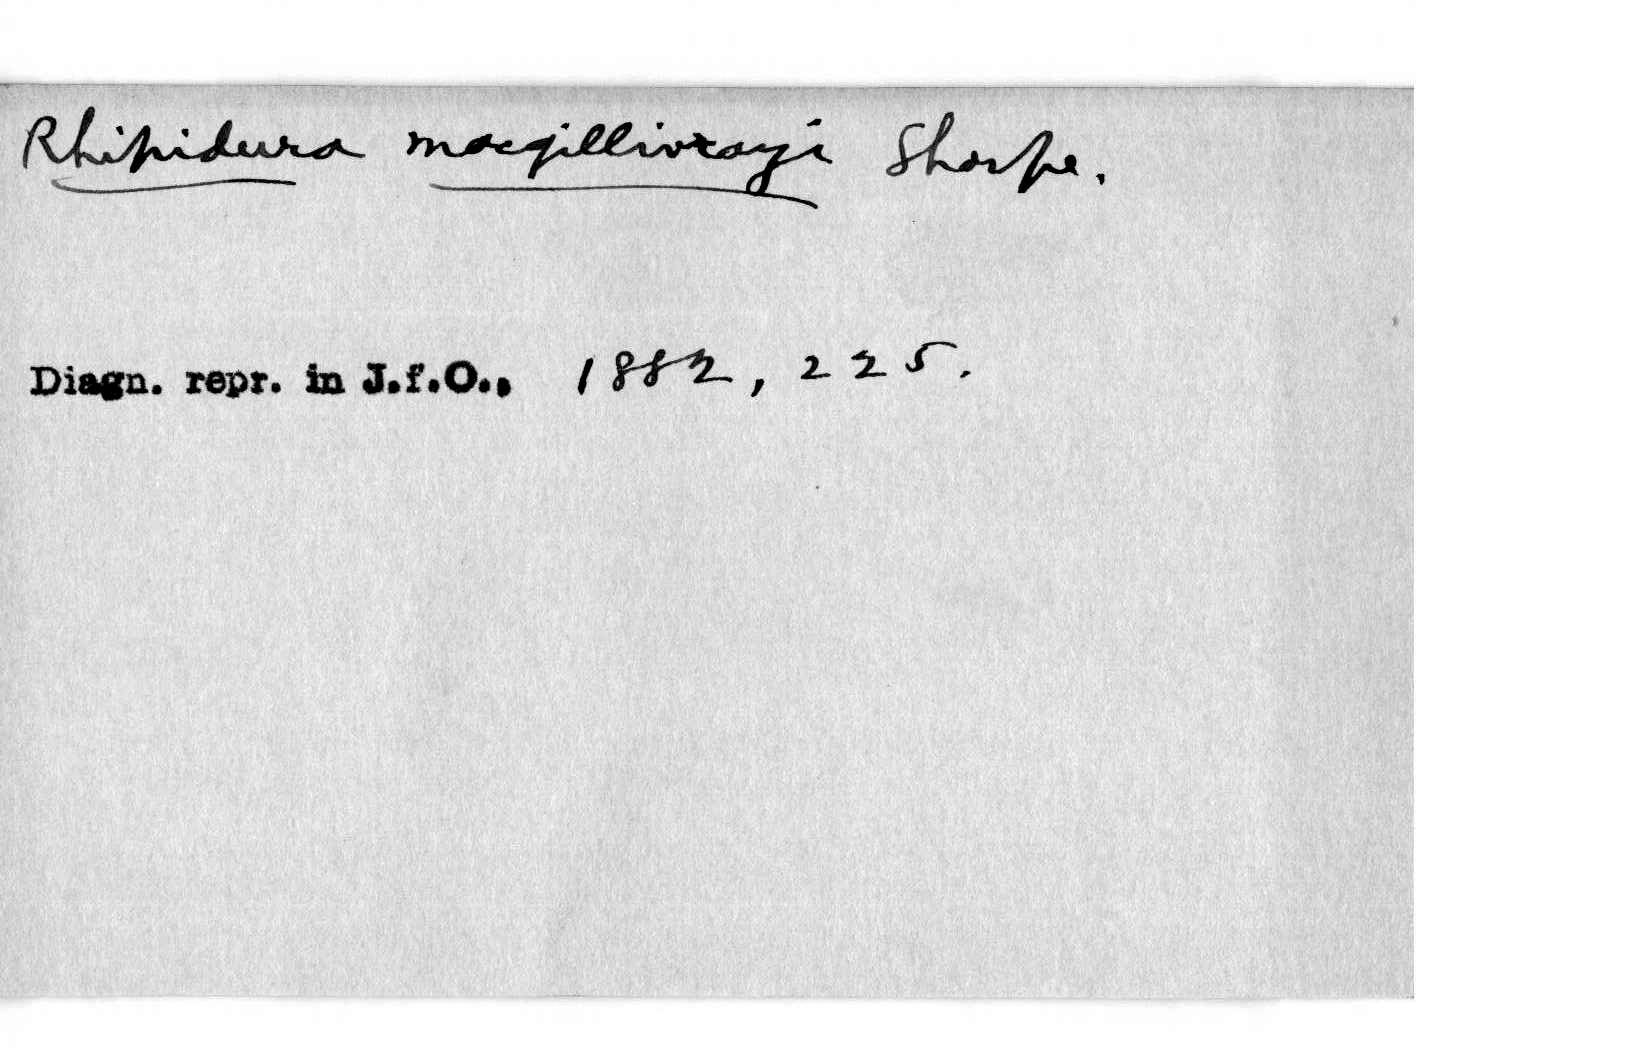 Rhipidura macgillivrayi Sharpe.
Diagn. repr. in J.f.O., 1882, 225.